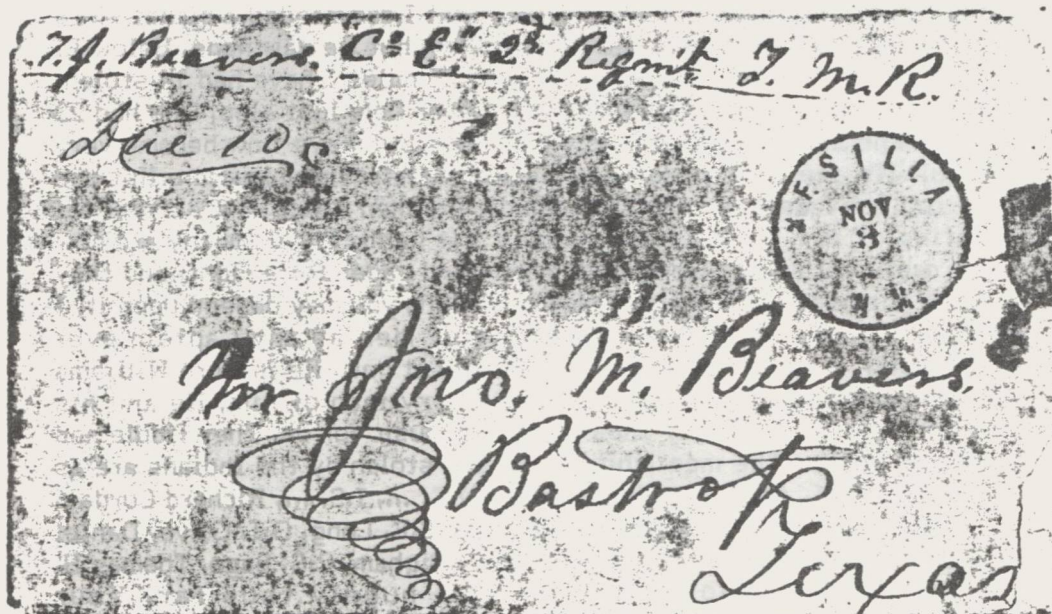 T.J. Beavers. "Co E," 2d Regmt T. M. R.
Due 10
MESILLA
NOV
3
N. M.
Mr Jno. M. Beavers.
Bastrop
Texas